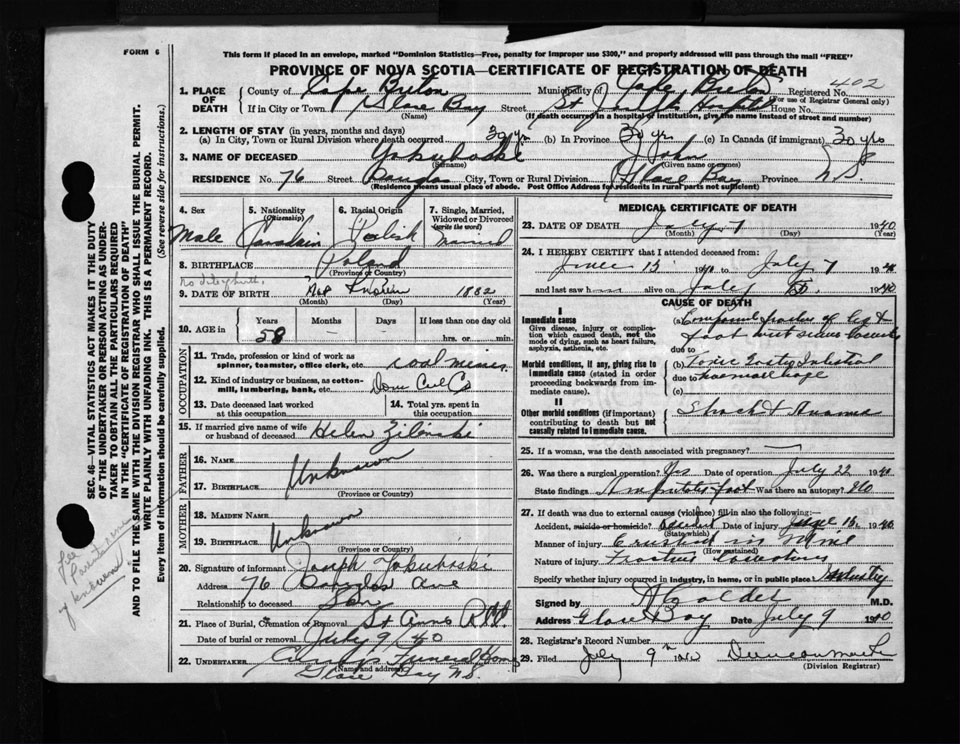 FORM 6
This form if placed in an envelope, marked "Dominion Statistics—Free, penalty for improper use $300," and properly addressed will pass through the mail "FREE"
PROVINCE OF NOVA SCOTIA—CERTIFICATE OF REGISTRATION OF DEATH
1. PLACE OF DEATH
County of Cape Breton Municipality of Cape Breton Registered No. 402
(For use of Registrar General only)
If in City or Town Glace Bay Street St Hospital House No.
(Name) (If death occurred in a hospital of institution, give the name instead of street and number)
2. LENGTH OF STAY (in years, months and days)
(a) In City, Town or Rural Division where death occurred 30 yrs (b) In Province 30 yrs (c) In Canada (if immigrant) 30 yrs
3. NAME OF DECEASED Yakuboski John
(Surname) (Given name or names)
RESIDENCE No. 76 Street Douglas City, Town or Rural Division Glace Bay Province N.S.
(Residence means usual place of abode. Post Office Address for residents in rural parts not sufficient)
4. Sex
Male
5. Nationality
(Citizenship)
Canadain
6. Racial Origin
Polish
7. Single, Married, Widowed or Divorced
(write the word)
Married
8. BIRTHPLACE Poland
(Province or Country)
9. DATE OF BIRTH Not Known 1882
(Month) (Day) (Year)
10. AGE in
Years Months Days If less than one day old
58 — hrs. or min.
OCCUPATION
11. Trade, profession or kind of work as
spinner, teamster, office clerk, etc. coal miner
12. Kind of industry or business, as cotton-
mill, lumbering, bank, etc. Dom Coal Co
13. Date deceased last worked
at this occupation
14. Total yrs. spent in
this occupation
15. If married give name of wife
or husband of deceased Helen Zilinski
FATHER
16. NAME
Unknown
17. BIRTHPLACE
(Province or Country)
MOTHER
18. MAIDEN NAME
Unknown
19. BIRTHPLACE
(Province or Country)
20. Signature of informant Joseph Yakuboski
Address 76 Douglas Ave
Relationship to deceased Son
21. Place of Burial, Cremation or Removal St Anns
Date of burial or removal July 9/40
22. UNDERTAKER Funeral Home
(Name and address)
Glace Bay N.S.
MEDICAL CERTIFICATE OF DEATH
23. DATE OF DEATH July 7 1940
(Month) (Day) (Year)
24. I HEREBY CERTIFY that I attended deceased from:
June 13 1940 to July 7 1940
and last saw h alive on July 1940
CAUSE OF DEATH
I
Immediate cause
Give disease, injury or complica-
tion which caused death, not the
mode of dying, such as heart failure,
asphyxia, asthenia, etc.
(a) Compound fracture of leg &
foot
due to
Morbid conditions, if any, giving rise to
immediate cause (stated in order
proceeding backwards from im-
mediate cause).
(b)
due to
(c)
II
Other morbid conditions (if important)
contributing to death but not
causally related to immediate cause.
Shock &
25. If a woman, was the death associated with pregnancy? —
26. Was there a surgical operation? Yes Date of operation July 22 1940
State findings Amputated foot Was there an autopsy? No
27. If death was due to external causes (violence) fill in also the following:—
Accident, suicide or homicide? Accident Date of injury June 13, 1940
(State which)
Manner of injury Crushed in Mine
(How sustained)
Nature of injury
Specify whether injury occurred in industry, in home, or in public place Industry
Signed by M.D.
Address Glace Bay Date July 9 1940
28. Registrar's Record Number
29. Filed July 9th 1940
(Division Registrar)
SEC. 46—VITAL STATISTICS ACT MAKES IT THE DUTY
OF THE UNDERTAKER OR PERSON ACTING AS UNDER-
TAKER TO OBTAIN ALL THE PARTICULARS REQUIRED
IN THE "CERTIFICATE OF REGISTRATION OF DEATH"
AND TO FILE THE SAME WITH THE DIVISION REGISTRAR WHO SHALL ISSUE THE BURIAL PERMIT.
WRITE PLAINLY WITH UNFADING INK. THIS IS A PERMANENT RECORD.
Every item of information should be carefully supplied.
(See reverse side for instructions.)
if known